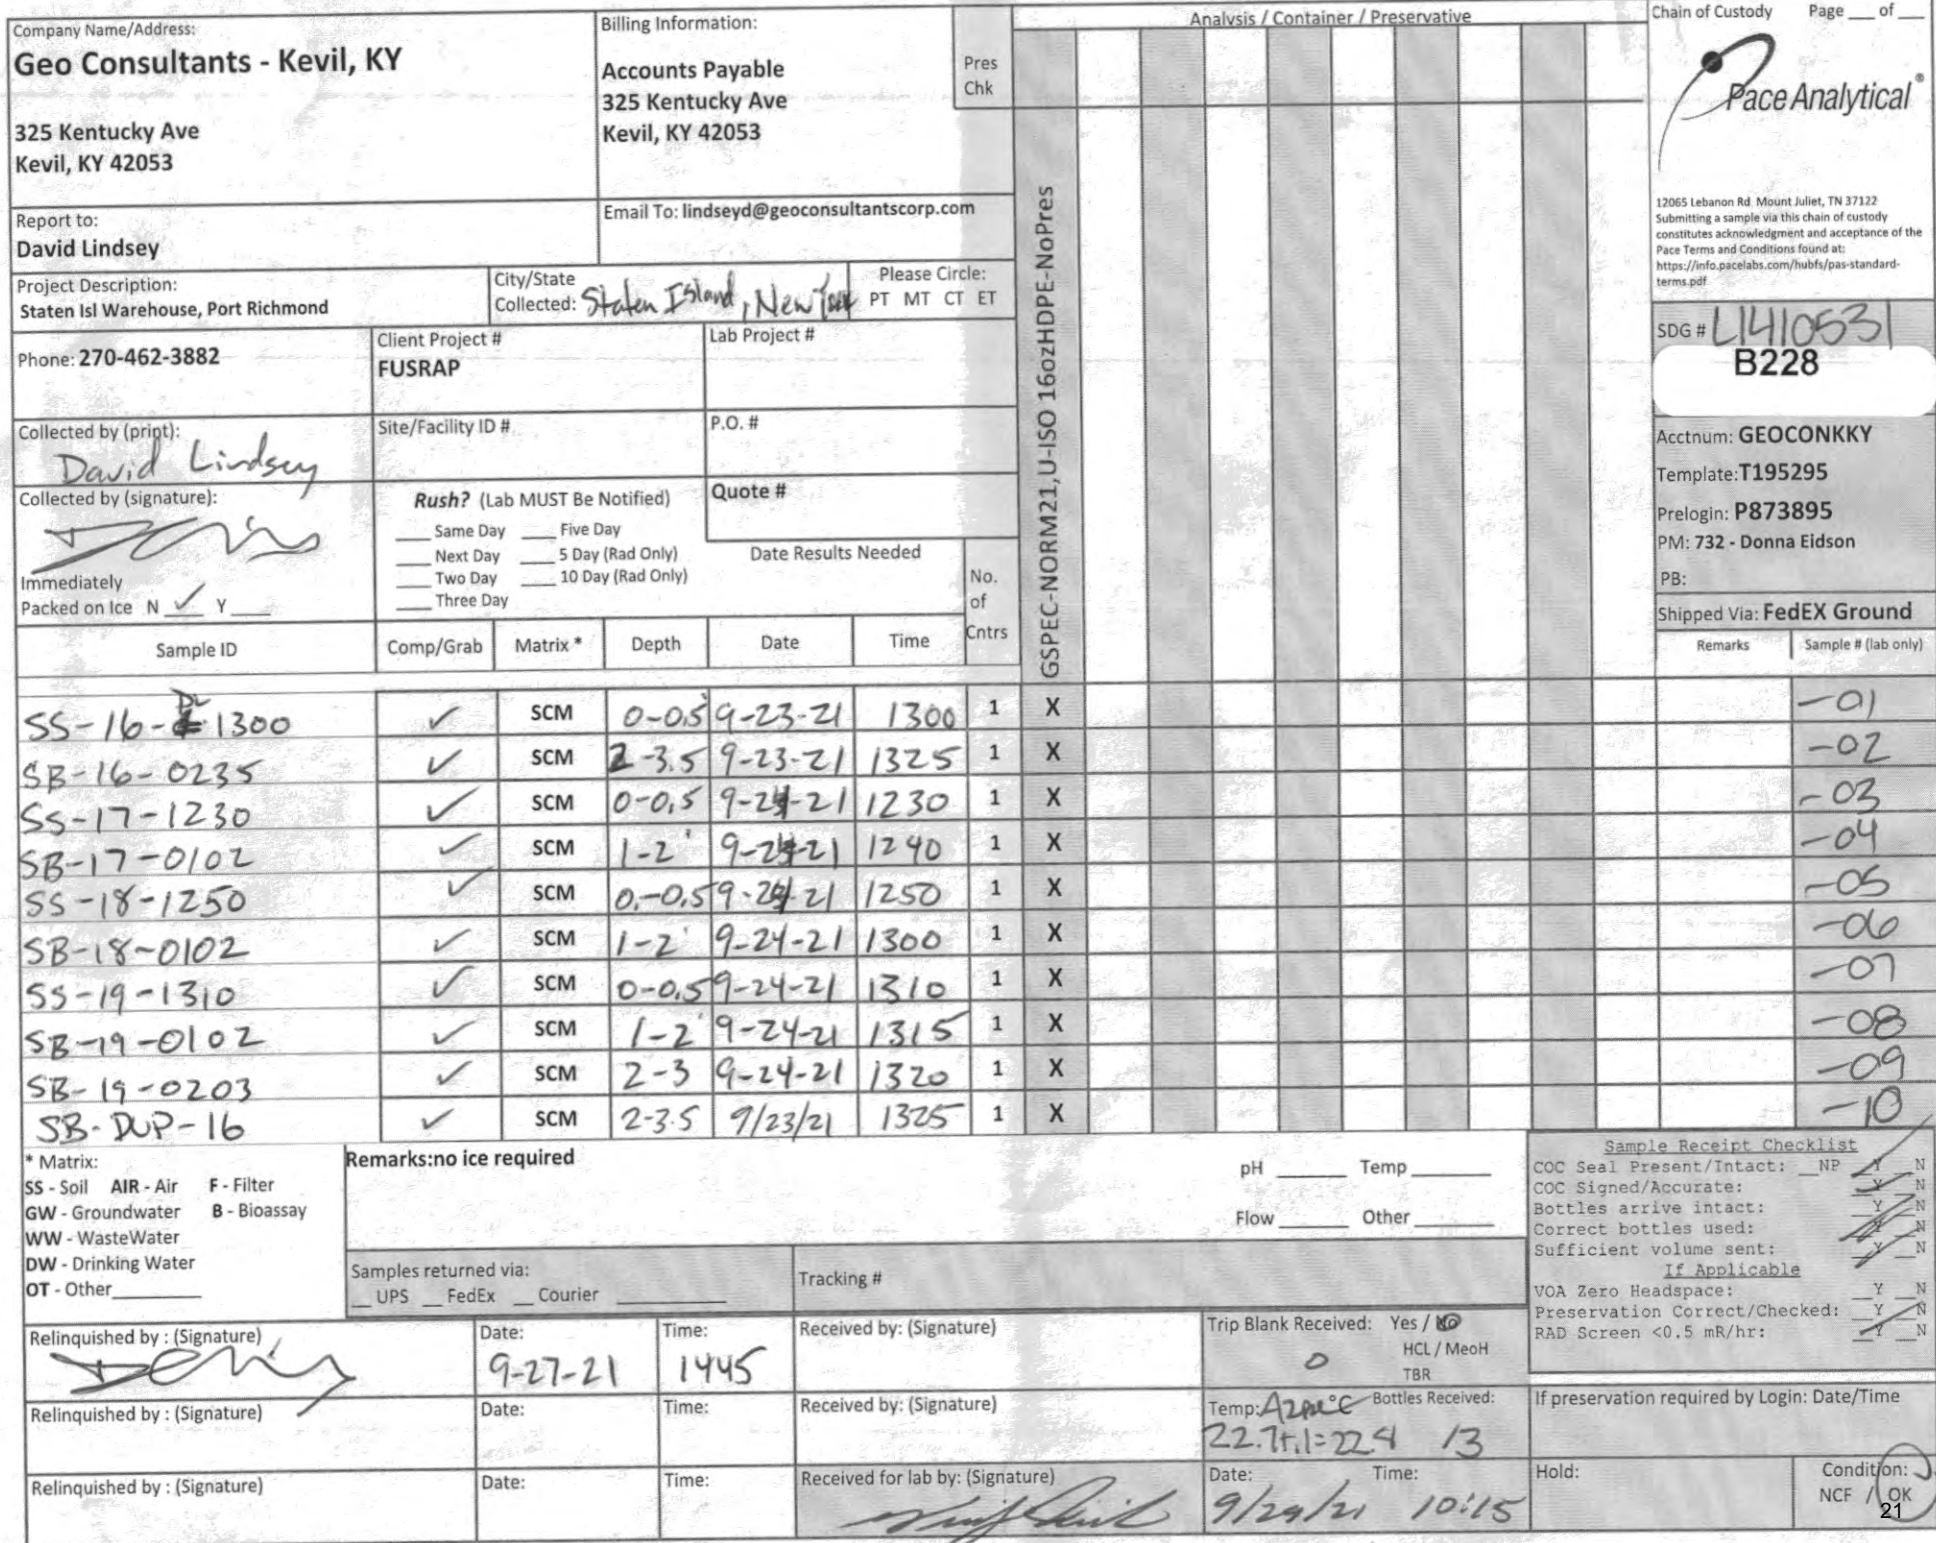 Company Name/Address:
Geo Consultants - Kevil, KY
325 Kentucky Ave
Kevil, KY 42053
Billing Information:
Accounts Payable
325 Kentucky Ave
Kevil, KY 42053
Pres
Chk
Analysis / Container / Preservative
Chain of Custody Page ___ of ___
Pace Analytical®
12065 Lebanon Rd Mount Juliet, TN 37122
Submitting a sample via this chain of custody
constitutes acknowledgment and acceptance of the
Pace Terms and Conditions found at:
https://info.pacelabs.com/hubfs/pas-standard-
terms.pdf
Report to:
David Lindsey
Email To: lindseyd@geoconsultantscorp.com
Project Description:
Staten Isl Warehouse, Port Richmond
City/State
Collected: Staten Island, New York
Please Circle:
PT MT CT ET
Phone: 270-462-3882
Client Project #
FUSRAP
Lab Project #
SDG # L1410531
B228
Collected by (print):
David Lindsey
Site/Facility ID #
P.O. #
Acctnum: GEOCONKKY
Template: T195295
Prelogin: P873895
PM: 732 - Donna Eidson
PB:
Shipped Via: FedEX Ground
Collected by (signature):
Rush? (Lab MUST Be Notified)
___ Same Day ___ Five Day
___ Next Day ___ 5 Day (Rad Only)
___ Two Day ___ 10 Day (Rad Only)
___ Three Day
Quote #
Date Results Needed
Immediately
Packed on Ice N ✓ Y ___
No.
of
Cntrs
GSPEC-NORM21,U-ISO 16ozHDPE-NoPres
Sample ID Comp/Grab Matrix * Depth Date Time Remarks Sample # (lab only)
SS-16-1300 ✓ SCM 0-0.5' 9-23-21 1300 1 X -01
SB-16-0235 ✓ SCM 2-3.5 9-23-21 1325 1 X -02
SS-17-1230 ✓ SCM 0-0.5 9-24-21 1230 1 X -03
SB-17-0102 ✓ SCM 1-2' 9-24-21 1240 1 X -04
SS-18-1250 ✓ SCM 0-0.5 9-24-21 1250 1 X -05
SB-18-0102 ✓ SCM 1-2' 9-24-21 1300 1 X -06
SS-19-1310 ✓ SCM 0-0.5 9-24-21 1310 1 X -07
SB-19-0102 ✓ SCM 1-2' 9-24-21 1315 1 X -08
SB-19-0203 ✓ SCM 2-3 9-24-21 1320 1 X -09
SB-DUP-16 ✓ SCM 2-3.5 9/23/21 1325 1 X -10
* Matrix:
SS - Soil AIR - Air F - Filter
GW - Groundwater B - Bioassay
WW - WasteWater
DW - Drinking Water
OT - Other___
Remarks:no ice required
pH ___ Temp ___
Flow ___ Other ___
Samples returned via:
__ UPS __ FedEx __ Courier ___
Tracking #
Sample Receipt Checklist
COC Seal Present/Intact: __NP __Y __N
COC Signed/Accurate: __Y __N
Bottles arrive intact: __Y __N
Correct bottles used: __Y __N
Sufficient volume sent: __Y __N
If Applicable
VOA Zero Headspace: __Y __N
Preservation Correct/Checked: __Y __N
RAD Screen <0.5 mR/hr: __Y __N
Relinquished by : (Signature)
Date:
9-27-21
Time:
1445
Received by: (Signature)
Trip Blank Received: Yes / No
0
HCL / MeoH
TBR
Relinquished by : (Signature)
Date:
Time:
Received by: (Signature)
Temp: °C Bottles Received:
22.4 13
If preservation required by Login: Date/Time
Relinquished by : (Signature)
Date:
Time:
Received for lab by: (Signature)
Date:
9/29/21
Time:
10:15
Hold:
Condition:
NCF / OK
21